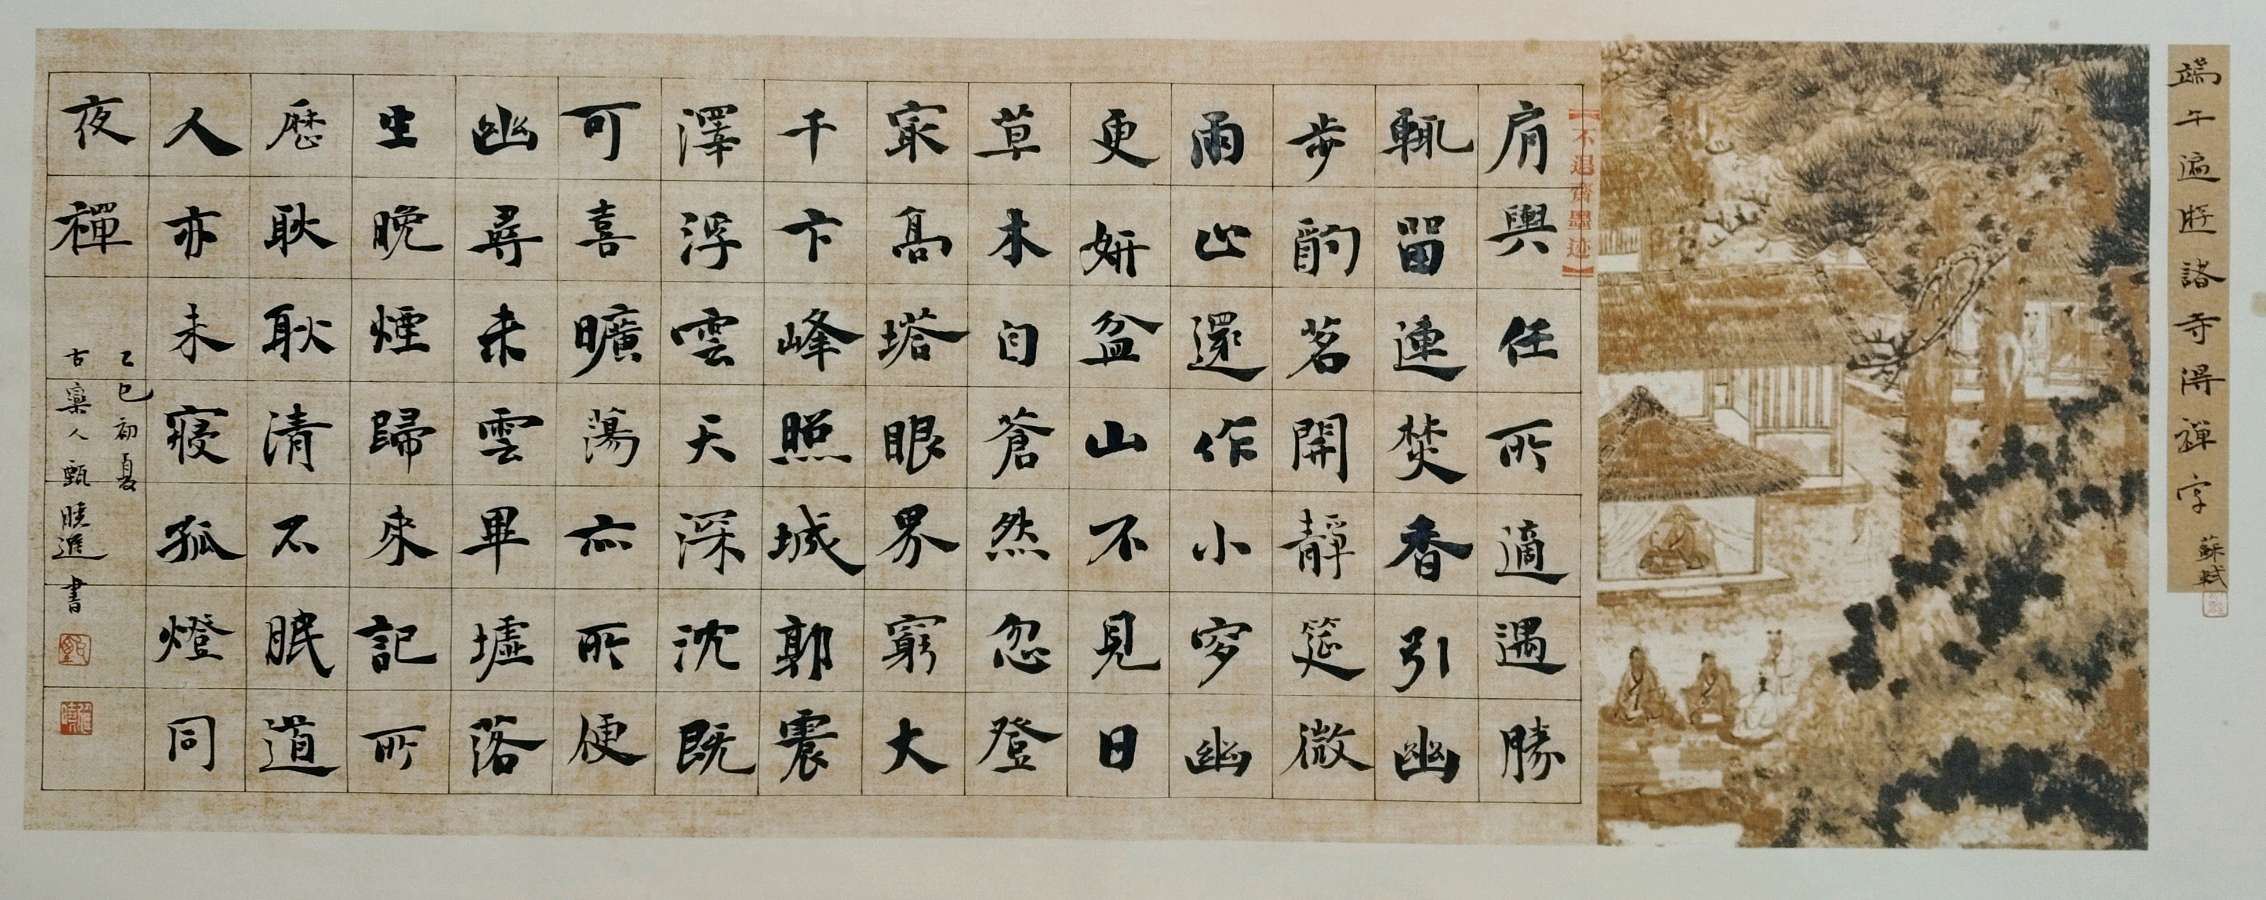 端午遍遊諸寺得禪字
蘇軾
【不退齋墨迹】
肩輿任所適遇勝
輒留連焚香引幽
步酌茗開靜筵微
雨止還作小窗幽
更妍盆山不見日
草木自蒼然忽登
最高塔眼界窮大
千卞峰照城郭震
澤浮雲天深沈既
可喜曠蕩亦所便
幽尋未雲畢墟落
生晚煙歸來記所
歷耿耿清不眠道
人亦未寢孤燈同
夜禪
乙巳初夏
古藁人甄曉進書